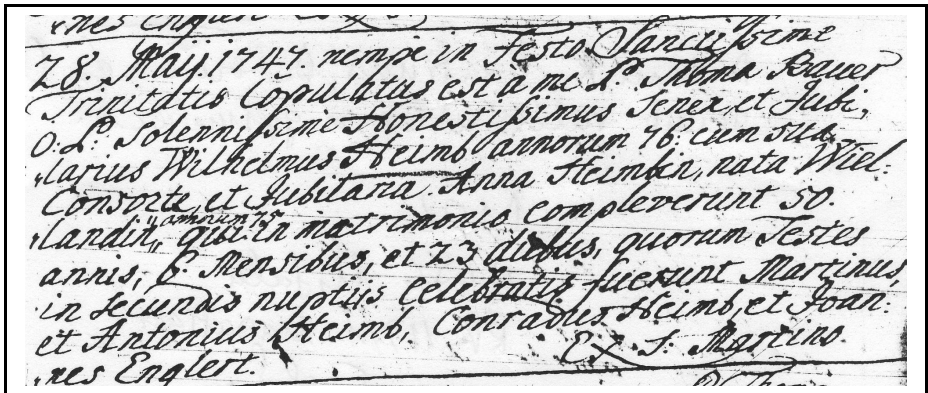 28. Maij. 1747. nempe in Festo Sanctissime
Trinitatis Copulatus est a me P. Thoma
O: P. Solennissime Honestissimus Senex, et Jubi,,
,,larius Wilhelmus Heimb annorum 76. cum sua
Consorte, et Jubilaria Anna Heimbin, nata Wiel:
annorum 75
,,landin,, qui in matrimonio compleverunt 50.
annis, 6. Mensibus, et 23 diebus, quorum Testes
in secundis nuptiis Celebratis fuerunt Martinus,
et Antonius Heimb, Conradus Heimb, et Joan:
,,nes Englert. Ex S. Martino.